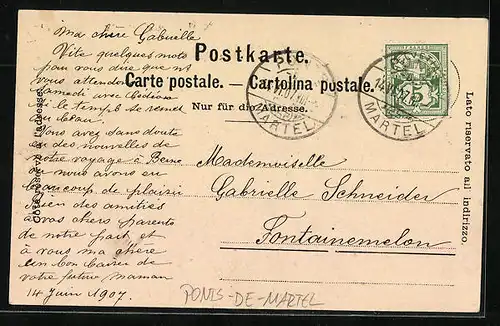 Ma chère Gabrielle
Vite quelques mots
pour vous dire que n
vous attendons
samedi avec
si le temps se remet
au beau.
Vous avez sans doute
eu des nouvelles de
notre voyage à Berne
où nous avons eu
beaucoup de plaisir
bien des amitiés
à vos chers parents
de notre part et
à vous ma chère
un bon baiser de
votre future maman
14 Juin 1907.
Postkarte.
Carte postale. — Cartolina postale.
Nur für die Adresse.
Côté réservé à l'adresse.
Lato riservato all indirizzo.
MARTEL
14.VI.07
MARTEL
Mademoiselle
Gabrielle Schneider
Fontainemelon
PONTS-DE-MARTEL